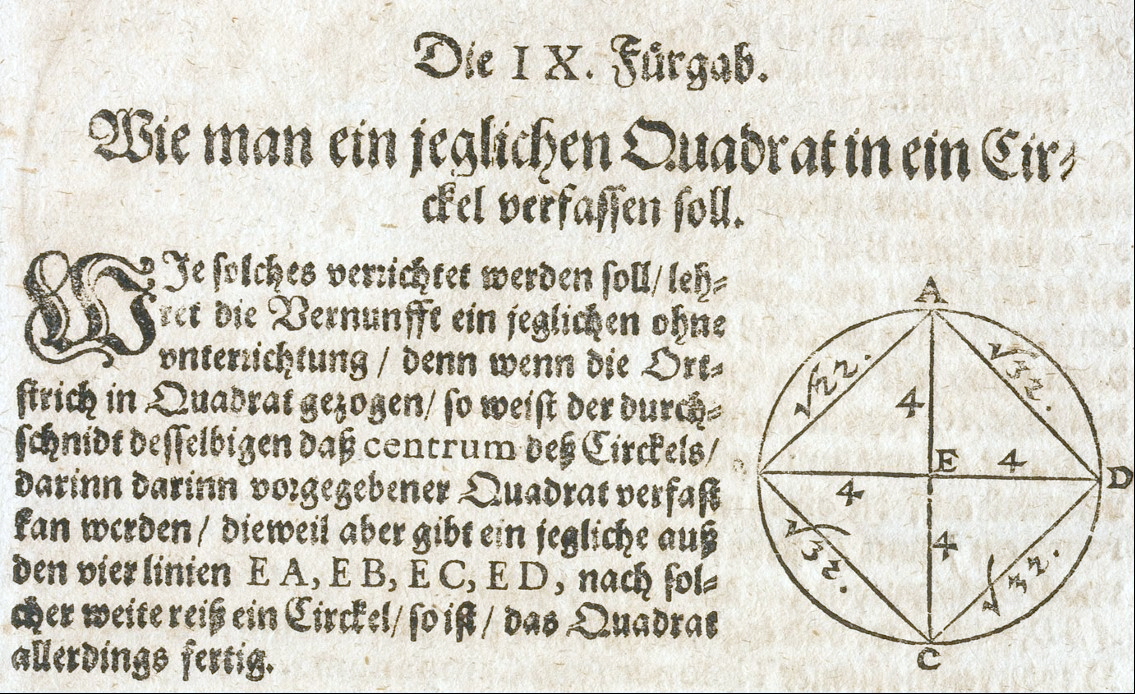 Die IX. Fürgab.
Wie man ein jeglichen Quadrat in ein Cir⸗
ckel verfassen soll.
WJe solches verrichtet werden soll/ leh⸗
ret die Vernunfft ein jeglichen ohne
vnterrichtung / denn wenn die Ort⸗
strich in Quadrat gezogen/ so weist der durch⸗
schnidt desselbigen daß centrum deß Circkels/
darinn darinn vorgegebener Quadrat verfast
kan werden / dieweil aber gibt ein jegliche auß
den vier linien EA, EB, EC, ED, nach sol⸗
cher weite reiß ein Circkel/ so ist / das Quadrat
allerdings fertig.
A
√22.
√32.
4
E
4
D
4
4
√32.
√32.
C